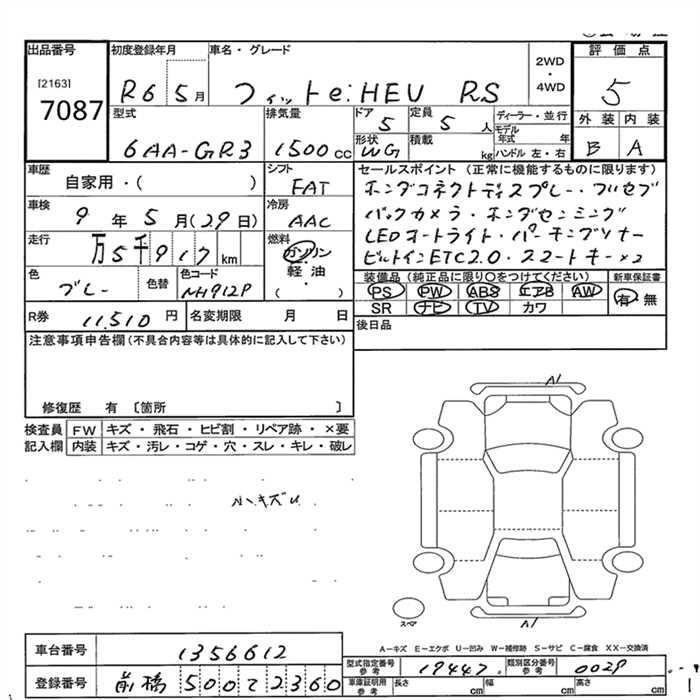 出品番号
[2163]
7087
初度登録年月
R6 5月
車名・グレード
フィット e:HEV RS
2WD
・
4WD
評価点
5
外装 内装
B A
型式
6AA-GR3
排気量
1500cc
ドア
5
定員
5人
形状
WG
積載
kg
ディーラー・並行
モデル年式 年
ハンドル 左・右
車歴
自家用・( )
シフト
FAT
車検
9年5月(29日)
冷房
AAC
走行
万5千917km
燃料
ガソリン
軽油
( ・ )
色
グレー
色替
色コード
NH912P
セールスポイント (正常に機能するものに限ります)
ホンダコネクトディスプレー・フルセグ
バックカメラ・ホンダセンシング
LEDオートライト・パーキングソナー
ビルトインETC2.0・スマートキー×2
装備品 (純正品に限り○をつけてください)
新車保証書
PS PW ABS エアB AW
SR ナビ TV カワ
有 無
R券
11,510円
名変期限 月 日
後日品
注意事項申告欄 (不具合内容等は具体的に記入して下さい)
修復歴 有 〔箇所 〕
検査員記入欄
FW キズ・飛石・ヒビ割・リペア跡・×要
内装 キズ・汚レ・コゲ・穴・スレ・キレ・破レ
ハ、キズU
A1
A1
スペア
A-キズ E-エクボ U-凹み W-補修跡 S-サビ C-腐食 XX-交換済
車台番号
1356612
登録番号
前橋 500て2360
型式指定番号 参考
19447
類別区分番号 参考
0029
車庫証明用 参考
長さ cm
幅 cm
高さ cm